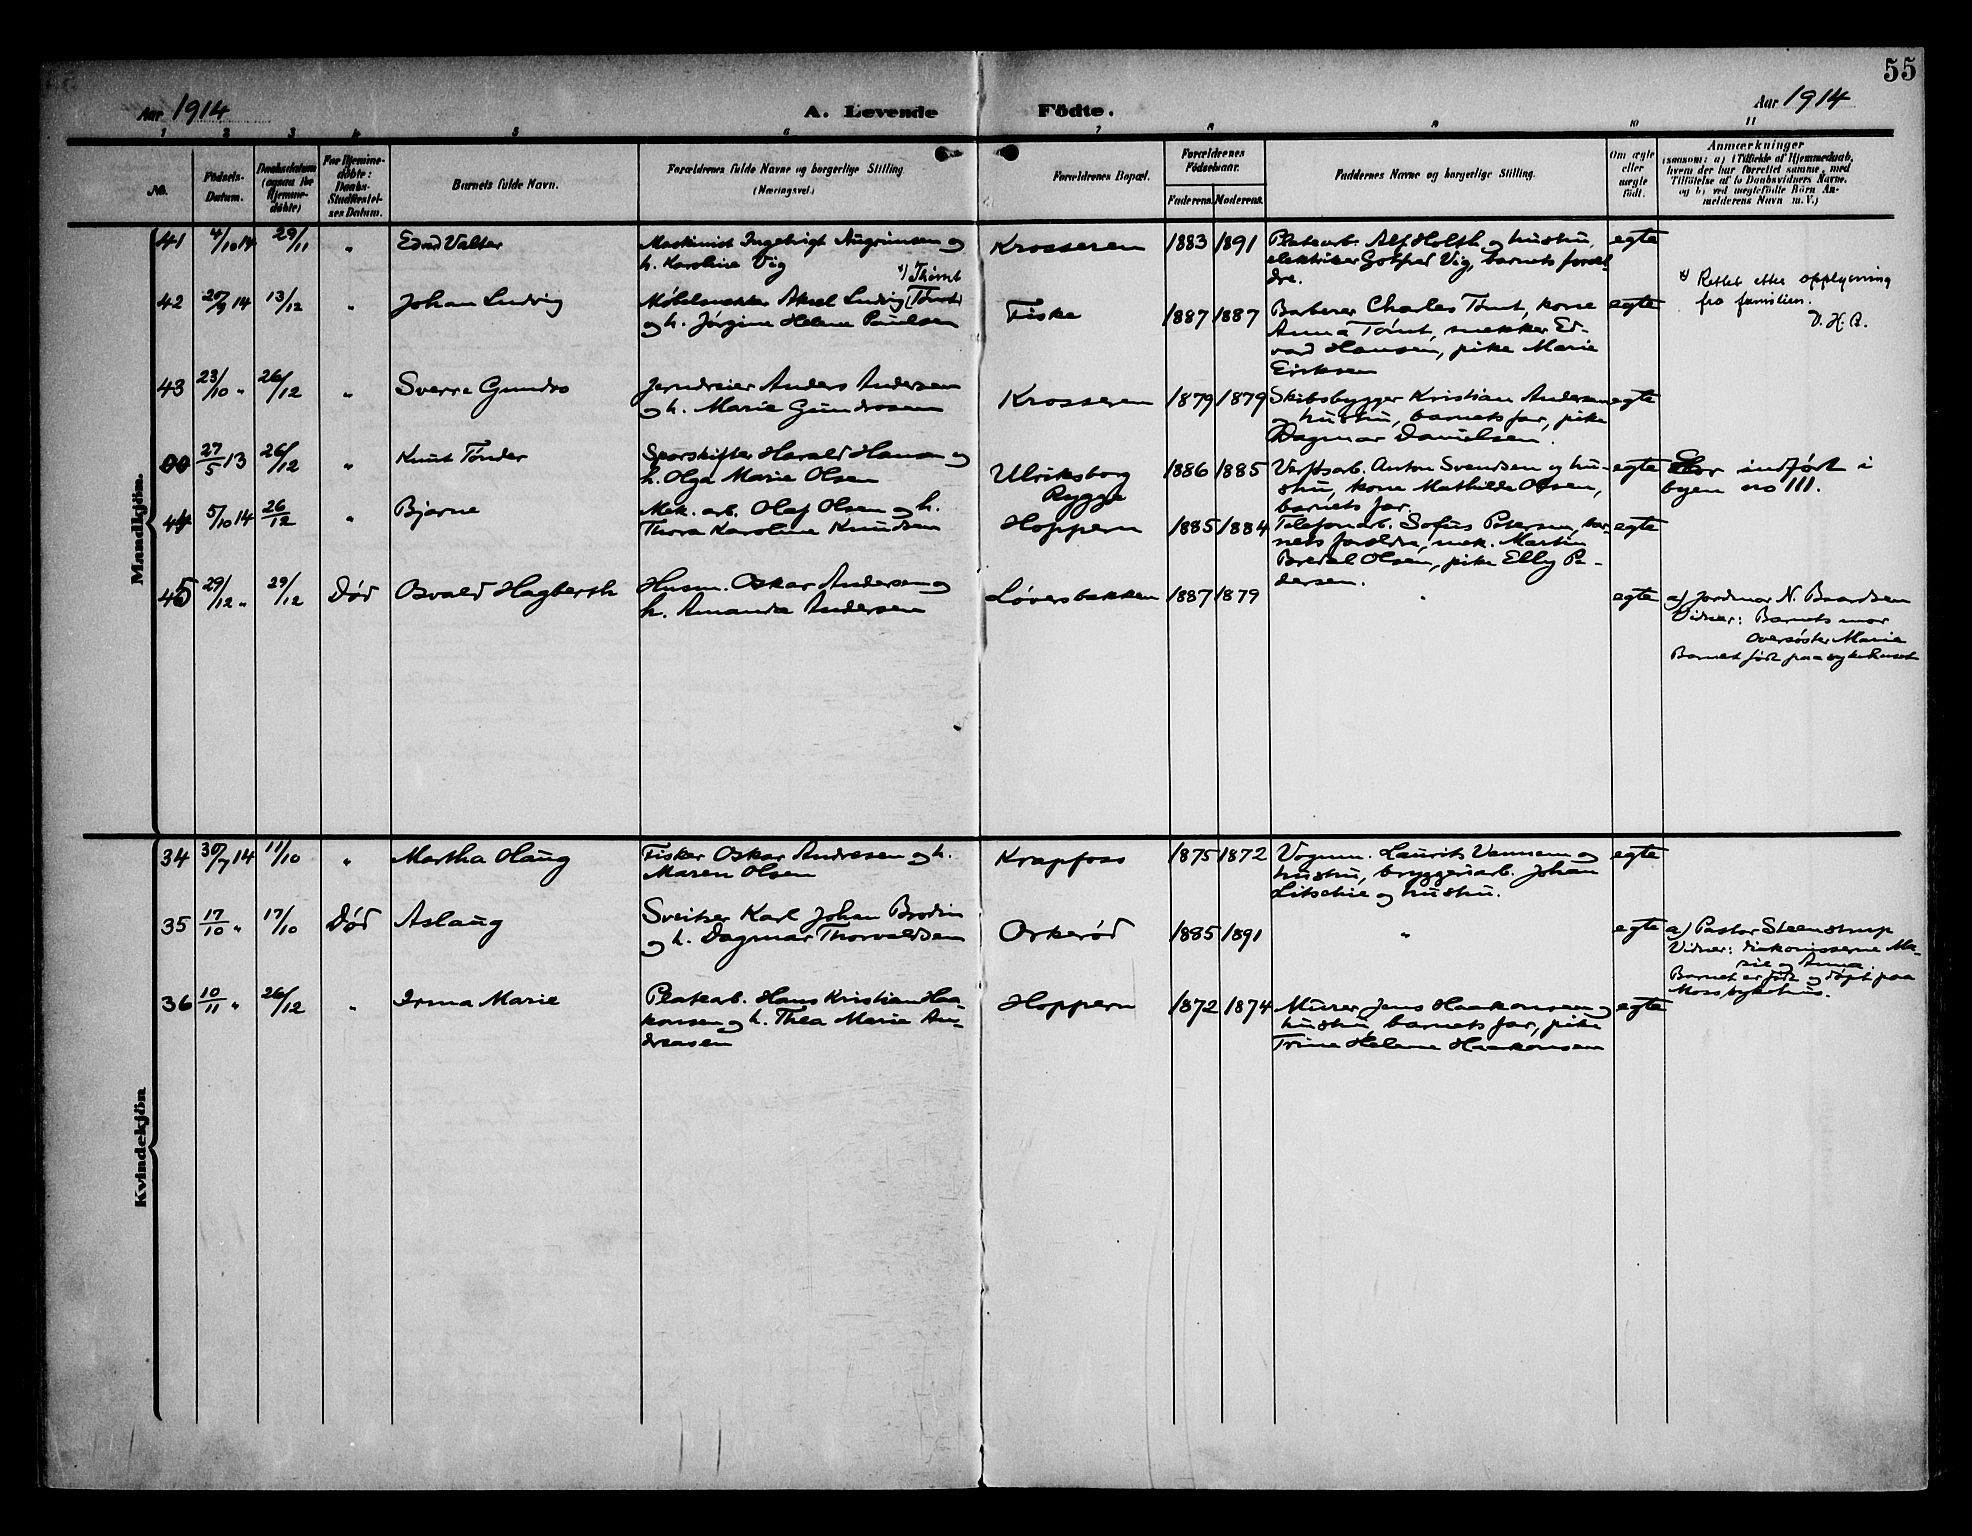 55
Aar 1914
A. Levende Födte.
Aar 1914
1 2 3 4 5 6 7 8 9 10 11
No.
Födsels-
Datum.
Daabsdatum
(ogsaa for
Hjemme-
döbte)
For Hjemme-
döbte:
Daabs-
Stadfæstel-
ses Datum.
Barnets fulde Navn.
Forældrenes fulde Navne og borgerlige Stilling
(Næringsvei.)
Forældrenes Bopæl.
Forældrenes
Födselsaar.
Faderens. Moderens.
Faddernes Navne og borgerlige Stilling.
Om ægte
eller
uægte
födt.
Anmærkninger
(saasom: a) i Tilfælde af Hjemmedaab,
hvem der har forrettet samme, med
Tilföielse af to Daabsvidners Navne,
og b) ved uægtefödte Börn An-
melderens Navn m. V.)
Mandkjön.
41 4/10 14 29/11 " Edvd Valter
Maskinist Ingebrigt Augrimsen og
h. Karoline Vig
Krosseren 1883 1891
Platearb. Alf Holth og hustru,
elektriker Gotfred Vig, barnets foræl-
dre.
egte
42 20/9 14 13/12 " Johan Ludvig
x) Thømt
Møbelsnekker Aksel Ludvig (Tømt)
og h. Jørgine Helene Paulsen
Fiske 1887 1887
Barberer Charles Tømt, kone
Anna Tømt, snekker Ed-
vard Hansen, pike Marie
Eriksen
egte
x) Rettet efter opplysning
fra familien.
D. H. B.
43 23/10 " 26/12 " Sverre Gundro
Jerndreier Anders Andersen
og h. Marie Gundrosen
Krosseren 1879 1879
Skibsbygger Kristian Andersen
og hustru, barnets far, pike
Dagmar Danielsen.
egte
00 27/5 13 26/12 " Knut Tønder
Sporskifter Harald Hansen og
h. Olga Marie Olsen
Ulriksborg
Rygge
1886 1885
Verftsarb. Anton Svendsen og hu-
stru, kone Mathilde Olsen,
barnets far.
egte
indført i
byen no 111.
44 5/10 14 26/12 " Bjarne
Mek. arb. Olaf Olsen og h.
Thora Karoline Knudsen
Hoppern 1885 1884
Telefonarb. Sofus Petersen, bar-
nets foreldre, mek. Martin
Bredal Olsen, pike Elly Pe-
dersen.
egte
45 29/12 " 29/12 Død Osvald Hagberth
Husm. Oskar Andersen og
h. Amanda Andersen
Løversbakken 1887 1879 " egte
a) Jordmor N. Baardsen
Vidner: Barnets mor
oversøster Marie
Barnet født paa sykehuset
Kvindekjön
34 30/7 14 11/10 " Martha Haug
Fisker Oskar Andresen og h.
Maren Olsen
Krapfoss 1875 1872
Vognm. Laurits Vannem og
hustru, bryggeriarb. Johan
Litschie og hustru.
egte
35 17/10 " 17/10 Død Aslaug
Sveitser Karl Johan Brodin
og h. Dagmar Thorvaldsen
Orkerød 1885 1891 " egte
a) Pastor Steenstrup
Vidner: diakonisserne Ma-
rie og Anna.
Barnet er født og døpt paa
Moss sykehus.
36 10/11 " 26/12 " Irma Marie
Platearb. Hans Kristian Haa-
konsen og h. Thea Marie An-
dreasen
Hoppern 1872 1874
Murer Jens Haakonsen og
hustru, barnets far, pike
Trine Helene Haakonsen
egte